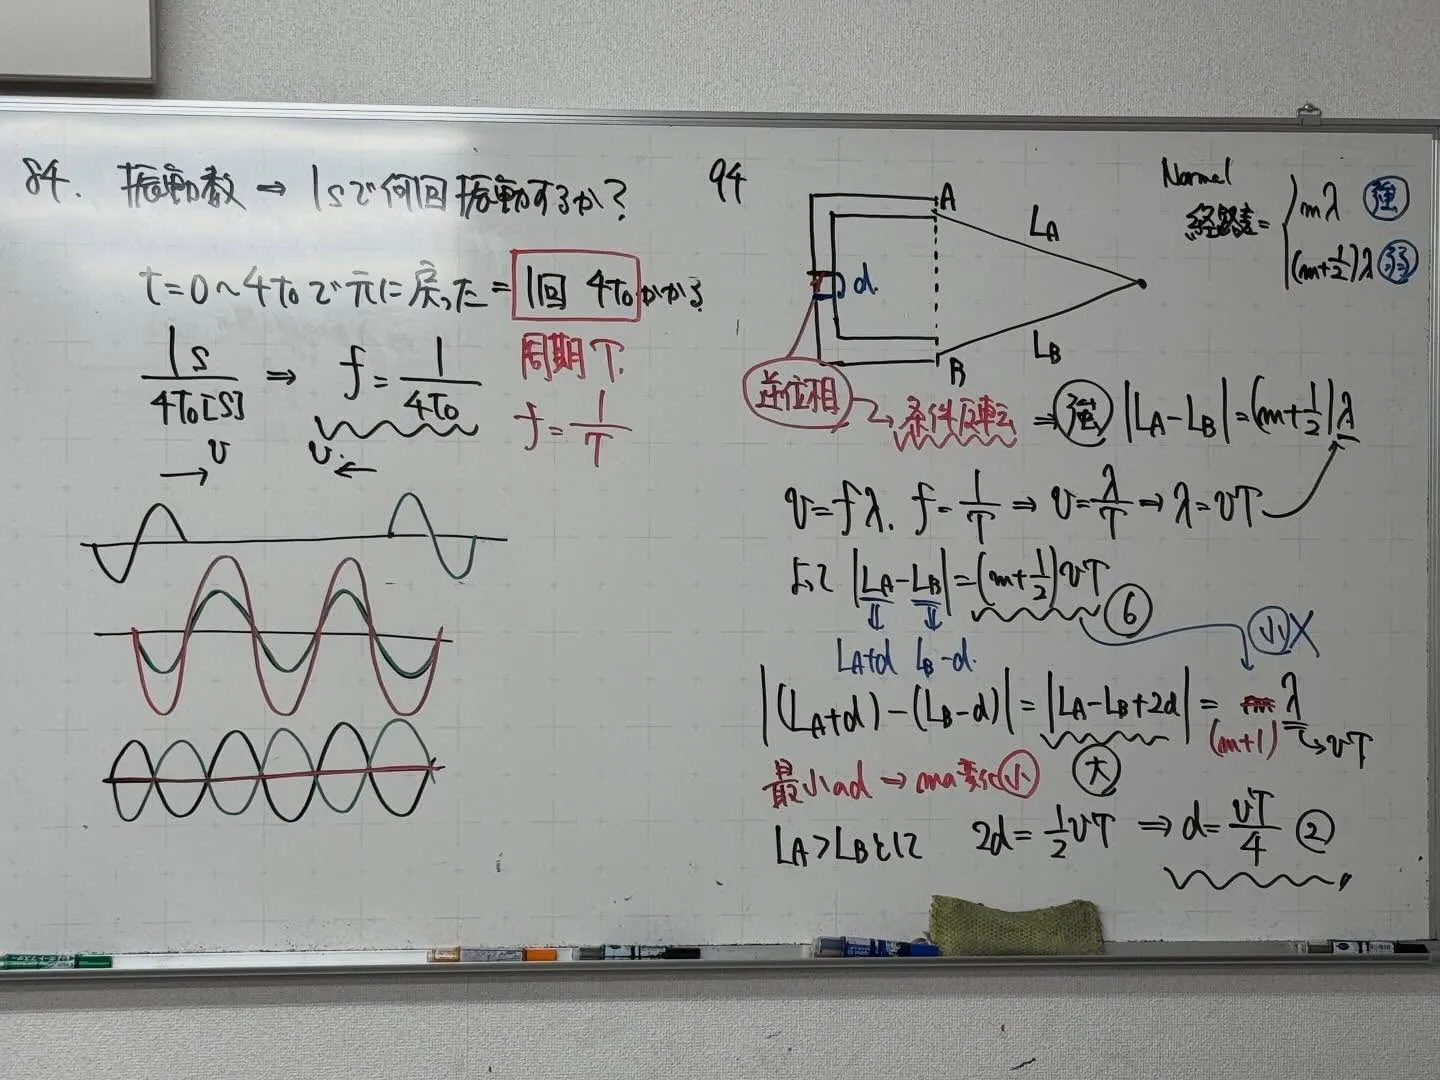 84. 振動数 → 1sで何回振動するか?
t=0~4T₀で元に戻った=1回 4T₀かかる
1s/4T₀[s] ⇒ f=1/4T₀
周期T.
f=1/T
v
v.
94
A
LA
d.
B
LB
Normal
経路差= { mλ 強
(m+1/2)λ 弱
逆位相 → 条件反転 ⇒ 強 |LA-LB|=(m+1/2)λ
v=fλ. f=1/T ⇒ v=λ/T ⇒ λ=vT
よって |LA-LB|=(m+1/2)vT ⑥
LA+d LB-d.
小 X
|(LA+d)-(LB-d)|=|LA-LB+2d|= m λ
(m+1) → vT
最小のd → mの変化小
大
LA>LBとして 2d=1/2vT ⇒ d=vT/4 ②